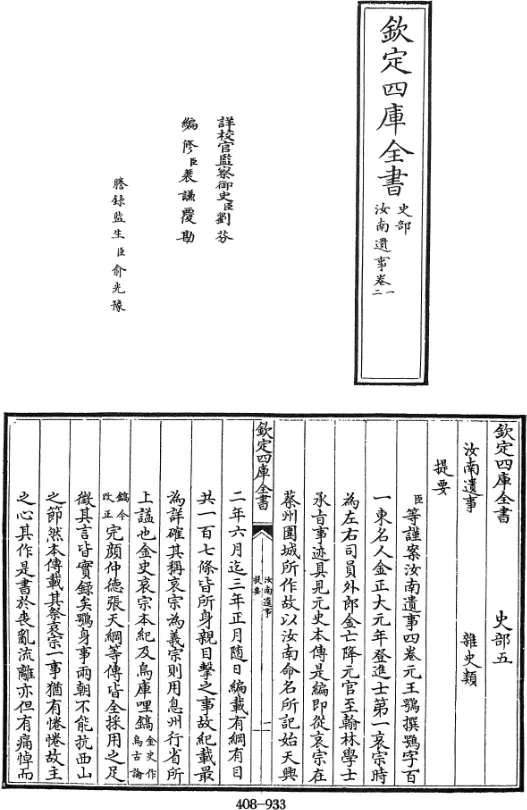 欽定四庫全書
史部
汝南遺事卷一
二
詳校官監察御史臣劉芬
編修臣裘謙覆勘
謄録監生臣俞光豫
欽定四庫全書
史部五
汝南遺事
雜史類
提要
臣等謹案汝南遺事四卷元王鶚撰鶚字百
一東名人金正大元年登進士第一哀宗時
為左右司員外郎金亡降元官至翰林學士
承旨事迹具見元史本傳是編即從哀宗在
蔡州圍城所作故以汝南命名所記始天興
欽定四庫全書
汝南遺事
提要
一
二年六月迄三年正月隨日編載有綱有目
共一百七條皆所身親目擊之事故紀載最
為詳確其稱哀宗為義宗則用息州行省所
上諡也金史哀宗本紀及烏庫哩鎬金史作烏古論
鎬今改正完顔仲德張天綱等傳皆全採用之足
徵其言皆實録矣鶚身事兩朝不能抗西山
之節然本傳載其祭哀宗一事猶有惓惓故主
之心其作是書於喪亂流離亦但有痛悼而
408-933